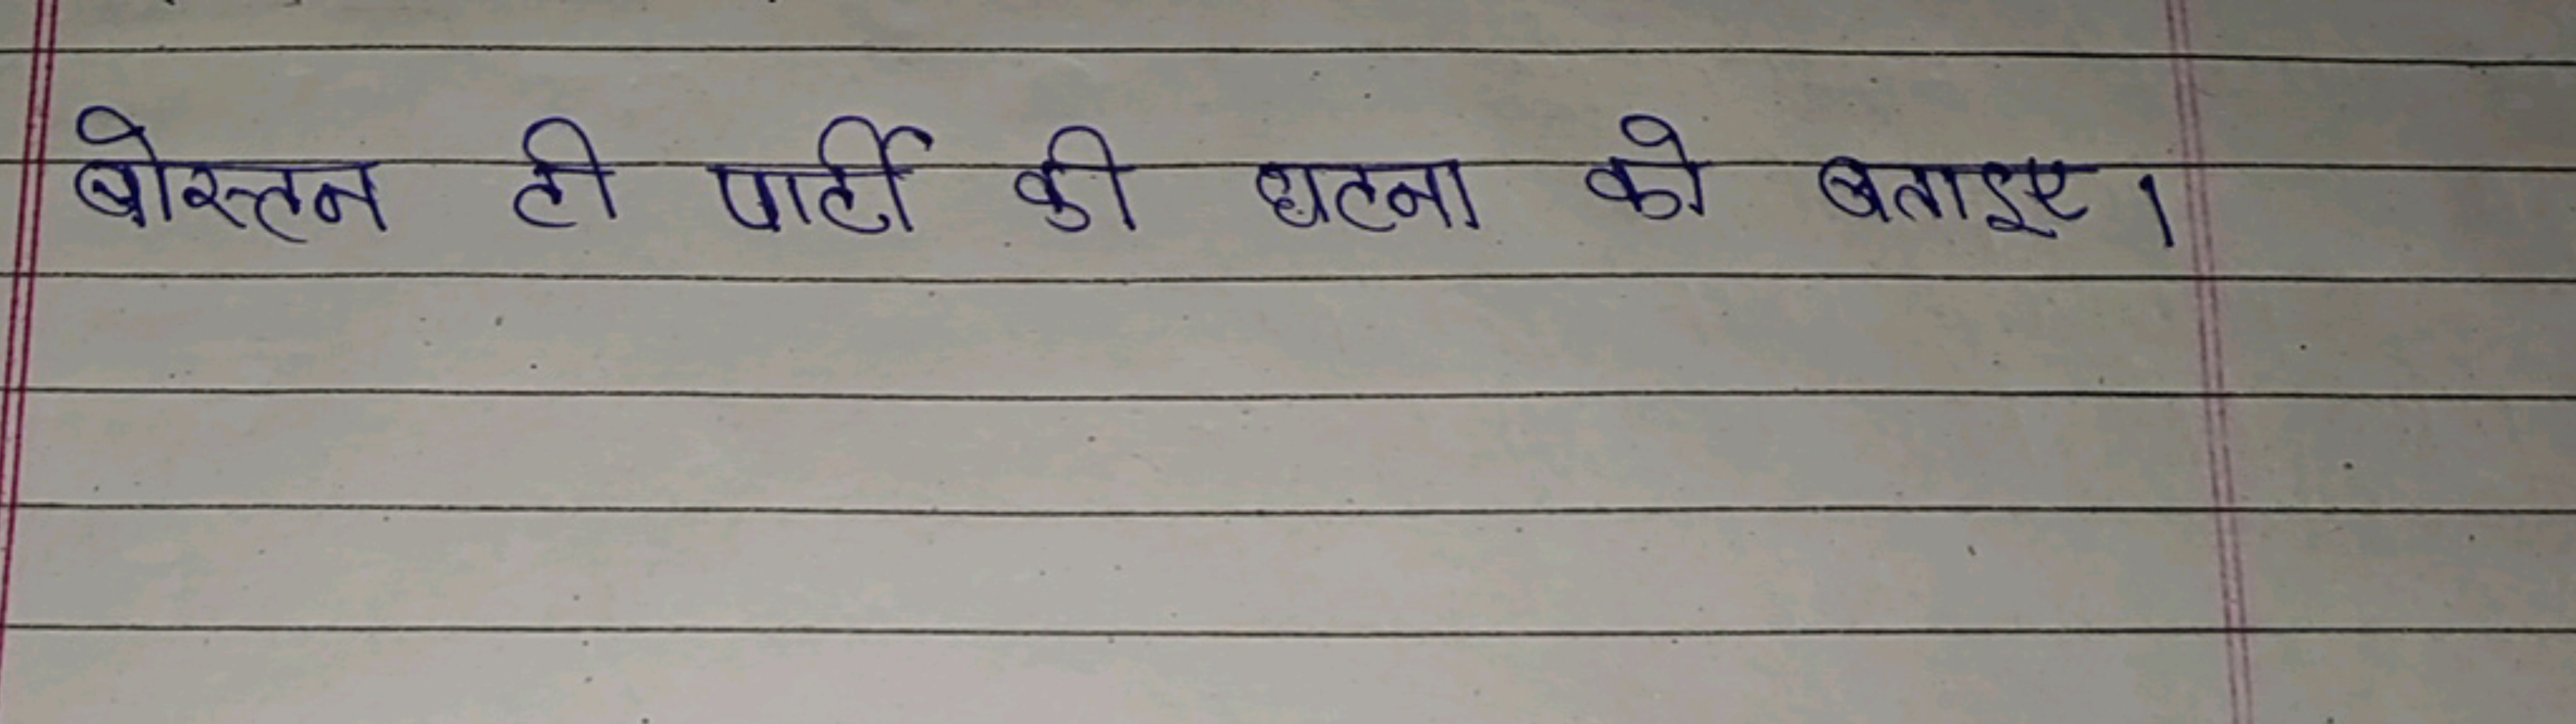 बोस्टन टी पार्टी की घटना को बताइए।